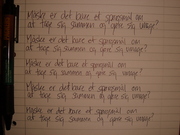 Måske er det bare et spørgsmål om
at tage sig sammen og gøre sig umage?
Måske er det bare et spørgsmål om
at tage sig sammen og gøre sig umage?
Måske er det bare et spørgsmål om
at tage sig sammen og gøre sig umage?
Måske er det bare et spørgsmål om
at tage sig sammen og gøre sig umage?
Måske er det bare et spørgsmål om
at tage sig sammen og gøre sig umage?